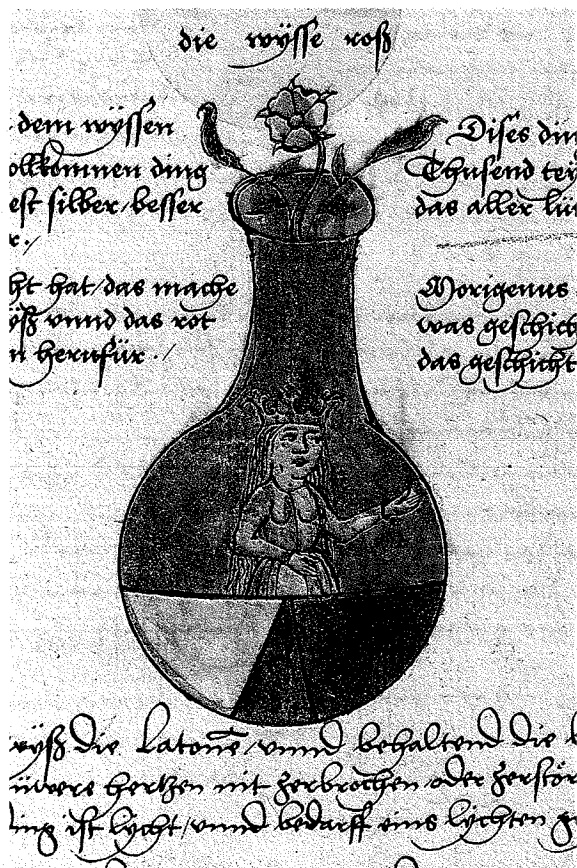 die wÿsse roß
dem wÿssen
ollkomnen ding
est silber, besser
r./
ht hat, das mache
ÿß vnnd das rot
n herufür ./
Dises din
Thusend teÿ
das aller lü
Morigenus
was geschich
das geschicht
wÿß die Latone, vnnd behaltend die
üwere hertzen nit zerbrochen oder zerstör
ing ist lÿcht, vnnd bedarff eins lÿchten